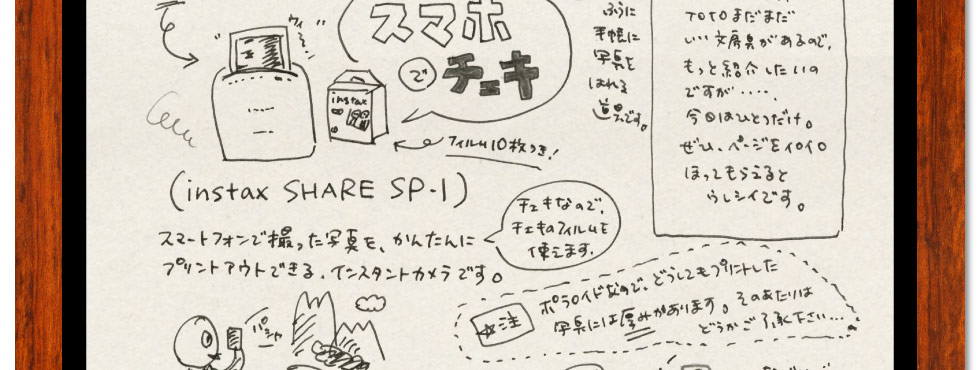 ウィーン
スマホ
で
チェキ
instax
フィルム10枚つき!
ふうに
手帳に
写真を
はれる
道具です。
TOTOまだまだ
いい文房具があるので、
もっと紹介したいの
ですが・・・・、
今回はひとつだけ。
ぜひ、ページをイロイロ
ほってもらえると
ウレシイです。
(instax SHARE SP-1)
チェキなので、
チェキのフィルムを
使えます。
スマートフォンで撮った写真を、かんたんに
プリントアウトできる、インスタントカメラです。
パシャ
※注
ポラロイドなので、どうしてもプリントした
写真には厚みがあります。そのあたりは
どうかご了承下さい…